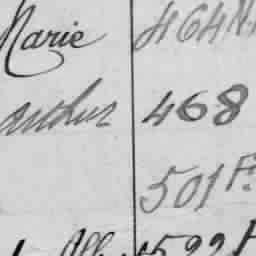 Marie 464 N.
Arthur 468
501 F.
599 F